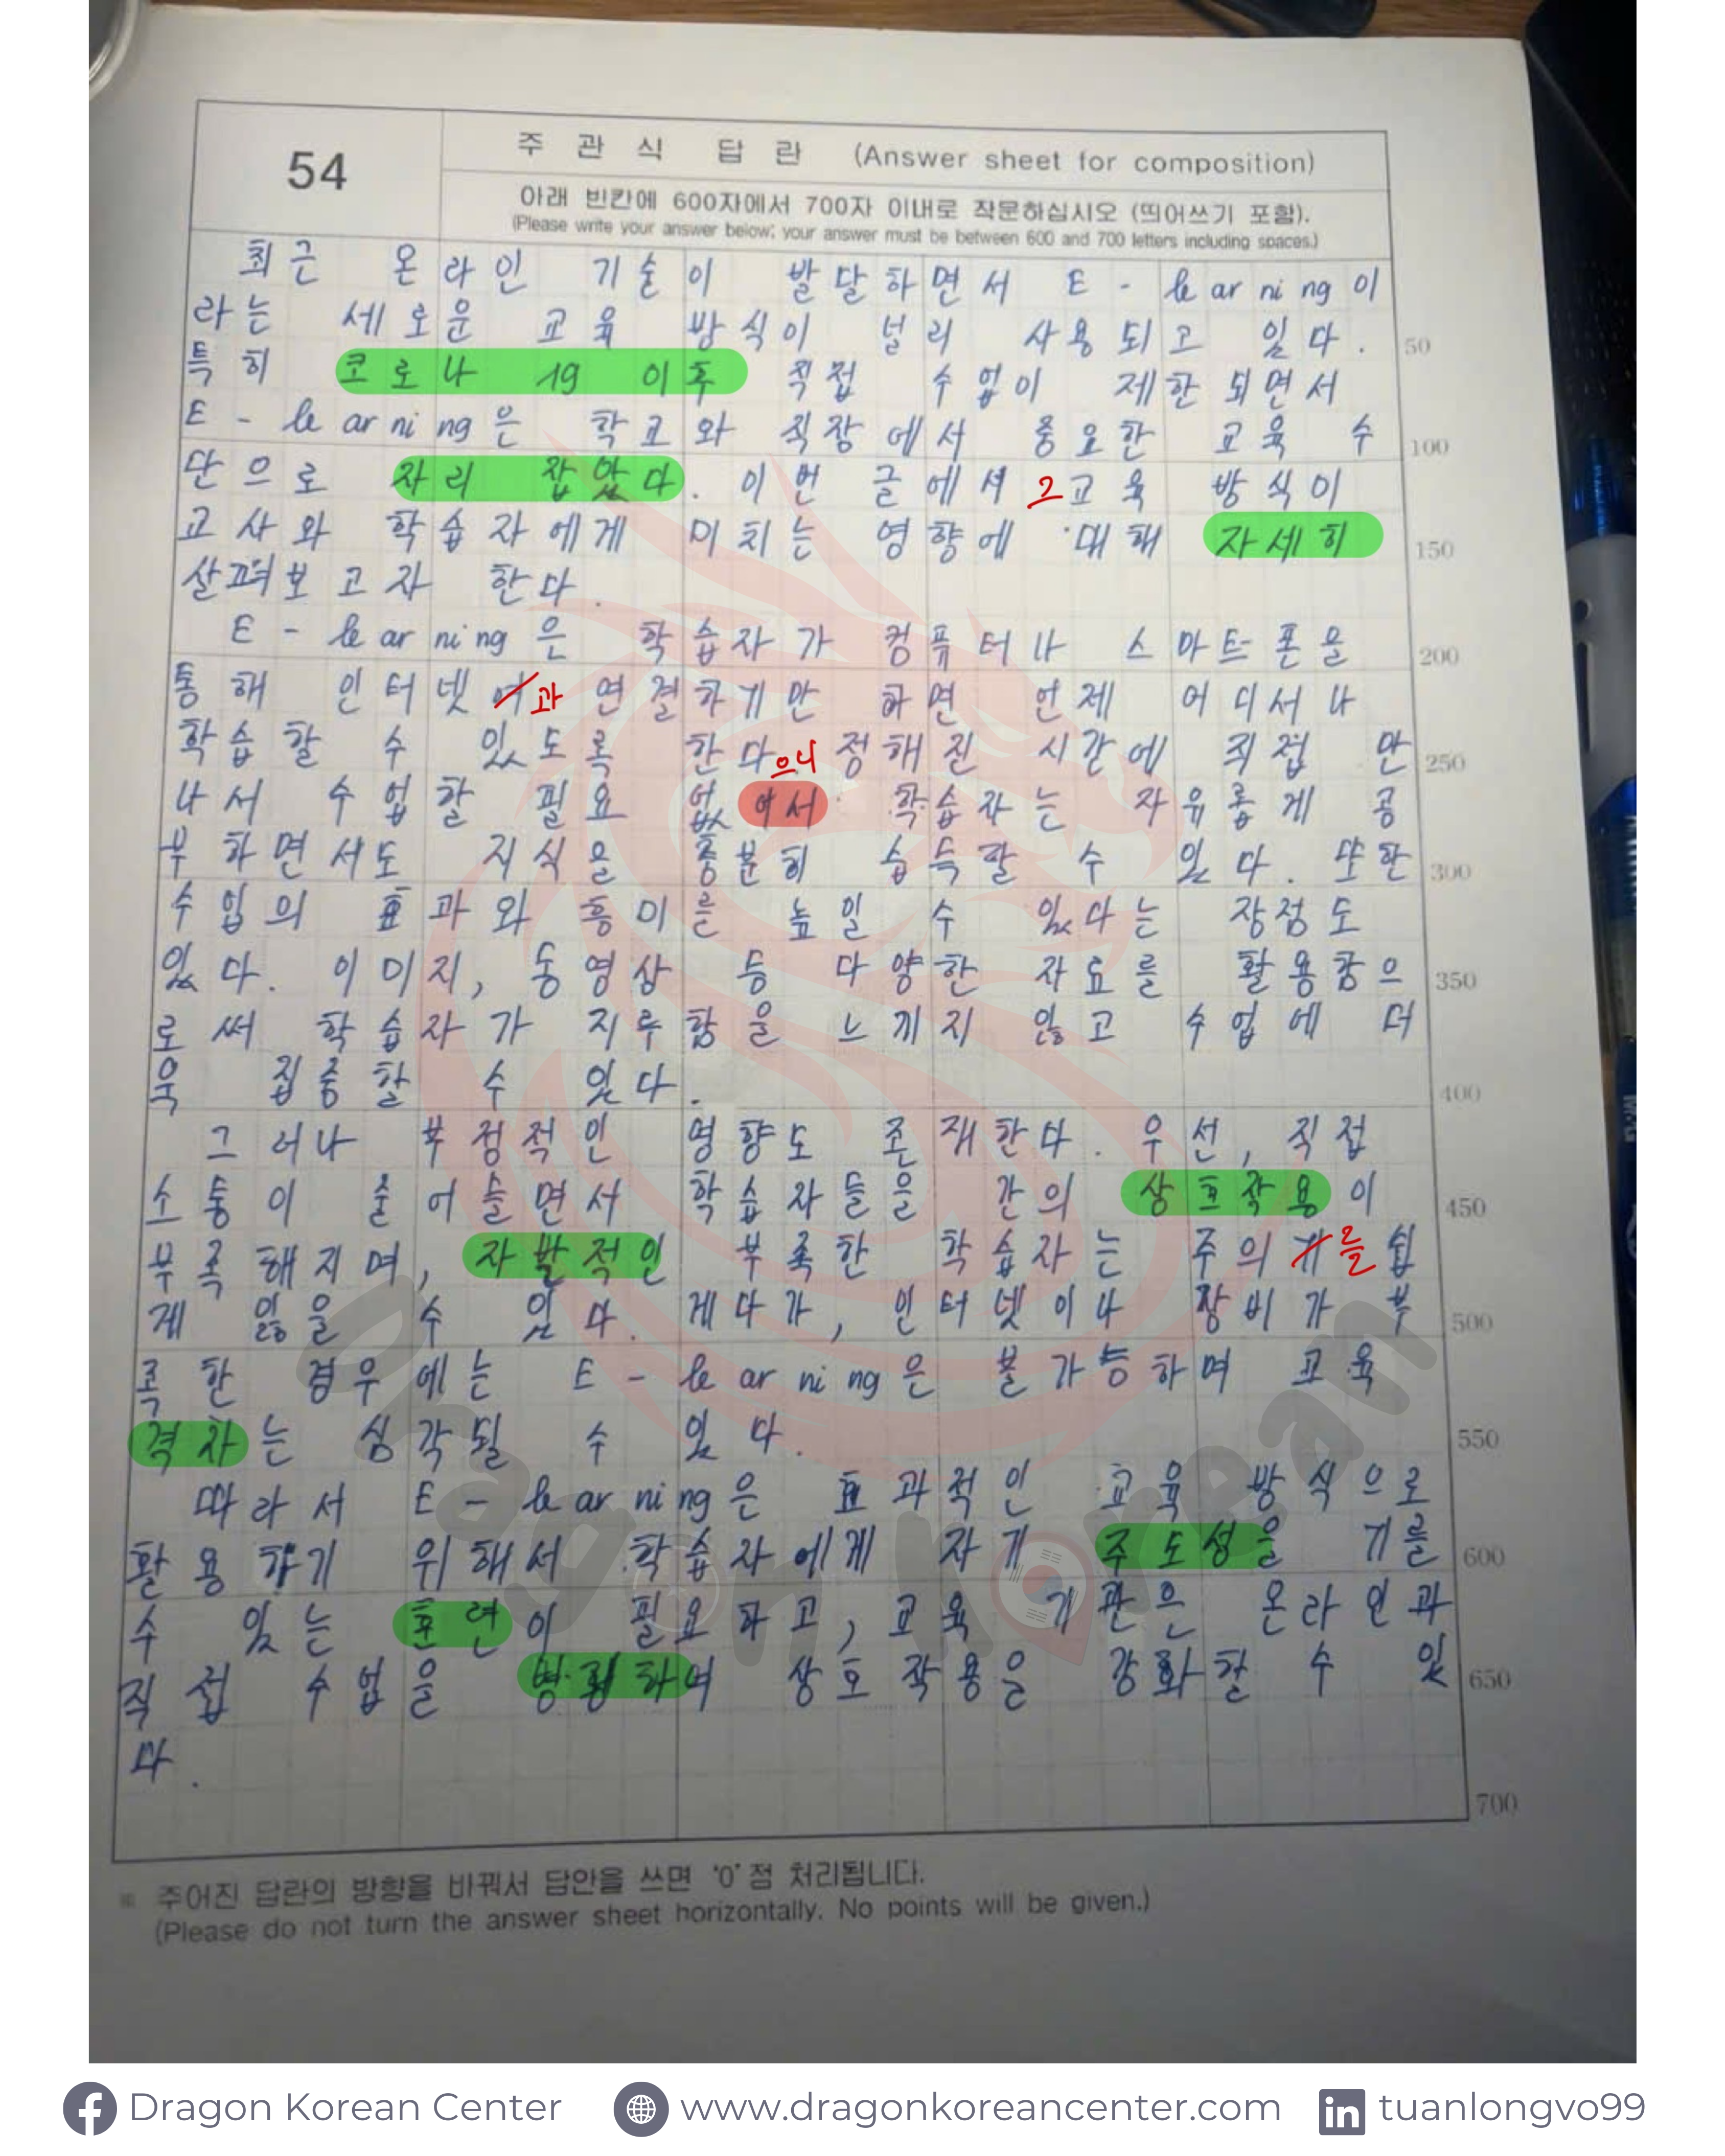 54
주 관 식 답 란 (Answer sheet for composition)
아래 빈칸에 600자에서 700자 이내로 작문하십시오 (띄어쓰기 포함).
(Please write your answer below; your answer must be between 600 and 700 letters including spaces.)
최근 온라인 기술이 발달하면서 E-learning이
라는 세로운 교육 방식이 널리 사용되고 있다. 50
특히 코로나 19 이후 직접 수업이 제한되면서
E-learning은 학교와 직장에서 중요한 교육 수 100
단으로 자리 잡았다. 이번 글에서 그 교육 방식이
교사와 학습자에게 미치는 영향에 대해 자세히 150
살펴보고자 한다.
E-learning은 학습자가 컴퓨터나 스마트폰을 200
통해 인터넷에 과 연결하기만 하면 언제 어디서나
학습할 수 있도록 한다 으니 정해진 시간에 직접 만 250
나서 수업할 필요 없어서 학습자는 자유롭게 공
부하면서도 지식을 충분히 습득할 수 있다. 또한 300
수업의 효과와 흥미를 높일 수 있다는 장점도
있다. 이미지, 동영상 등 다양한 자료를 활용함으 350
로써 학습자가 지루함을 느끼지 않고 수업에 더
욱 집중할 수 있다. 400
그러나 부정적인 영향도 존재한다. 우선, 직접
소통이 줄어들면서 학습자들을 간의 상호작용이 450
부족해지며, 자발적인 부족한 학습자는 주의가 를 쉽
게 잃을 수 있다. 게다가, 인터넷이나 장비가 부 500
족한 경우에는 E-learning은 불가능하며 교육
격차는 심각될 수 있다. 550
따라서 E-learning은 효과적인 교육 방식으로
활용하기 위해서 학습자에게 자기 주도성을 기를 600
수 있는 훈련이 필요하고, 교육 기관은 온라인과
직접 수업을 병행하여 상호작용을 강화할 수 있 650
다.
700
※ 주어진 답란의 방향을 바꿔서 답안을 쓰면 '0'점 처리됩니다.
(Please do not turn the answer sheet horizontally. No points will be given.)
Dragon Korean
Dragon Korean Center www.dragonkoreancenter.com tuanlongvo99